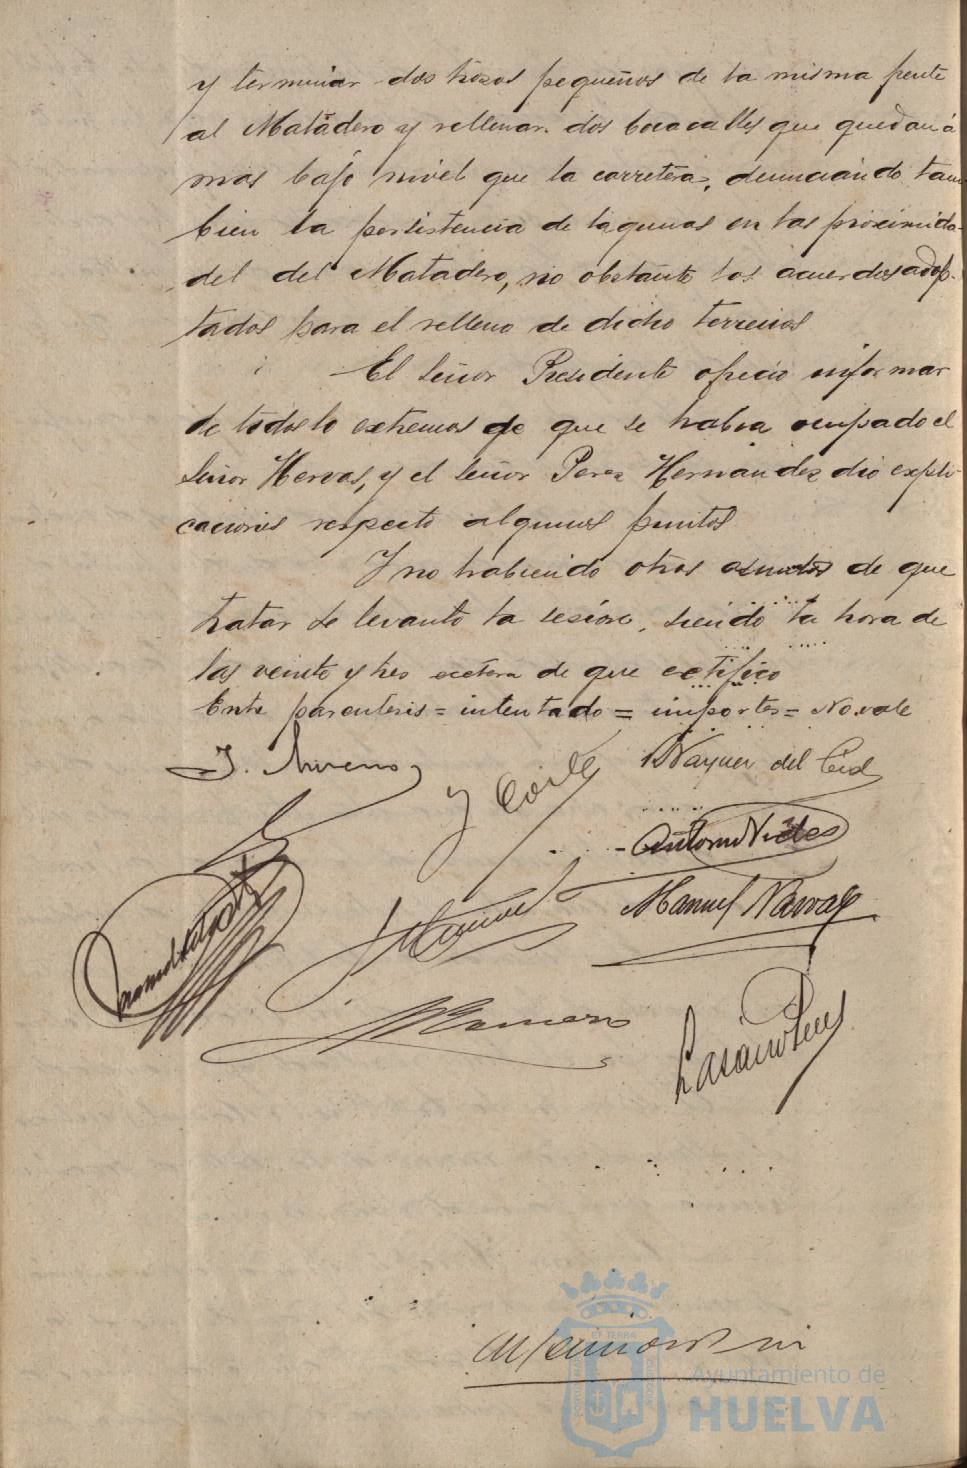 y terminar dos trozos pequeños de la misma frente
al Matadero y rellenar dos bocacalles que quedan á
mas bajo nivel que la carretera, denunciando tam
bien la persistencia de lagunas en las proximida-
des del Matadero, no obstante los acuerdos adop-
tados para el relleno de dicho terrenos
El Señor Presidente ofreció informar
de todos lo extremos de que se habia ocupado el
Señor Hervas, y el señor Perez Hernandez dio expli-
caciones respecto algunos puntos
Y no habiendo otros asuntos de que
tratar se levantó la sesion, siendo la hora de
las veinte y tres etcétera de que certifico
Entre parentesis = intentado = importes = No vale
J. Moreno
Vazquez del Cid
Antonio
Manuel Narvaez
Ayuntamiento de
HUELVA